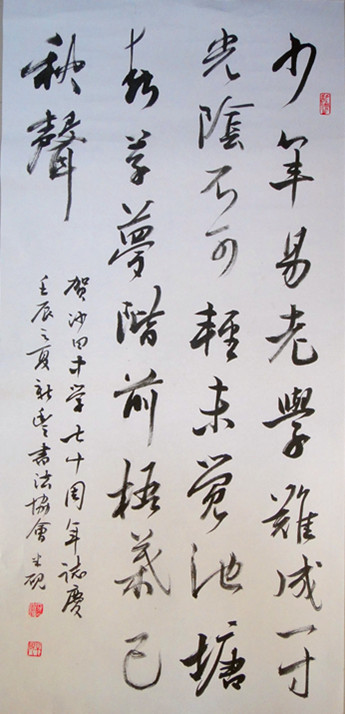 少年易老學難成一寸
光陰不可輕未覺池塘
春草夢階前梧葉已
秋聲
賀沙田中学七十周年誌慶
壬辰之夏新豐書法協會